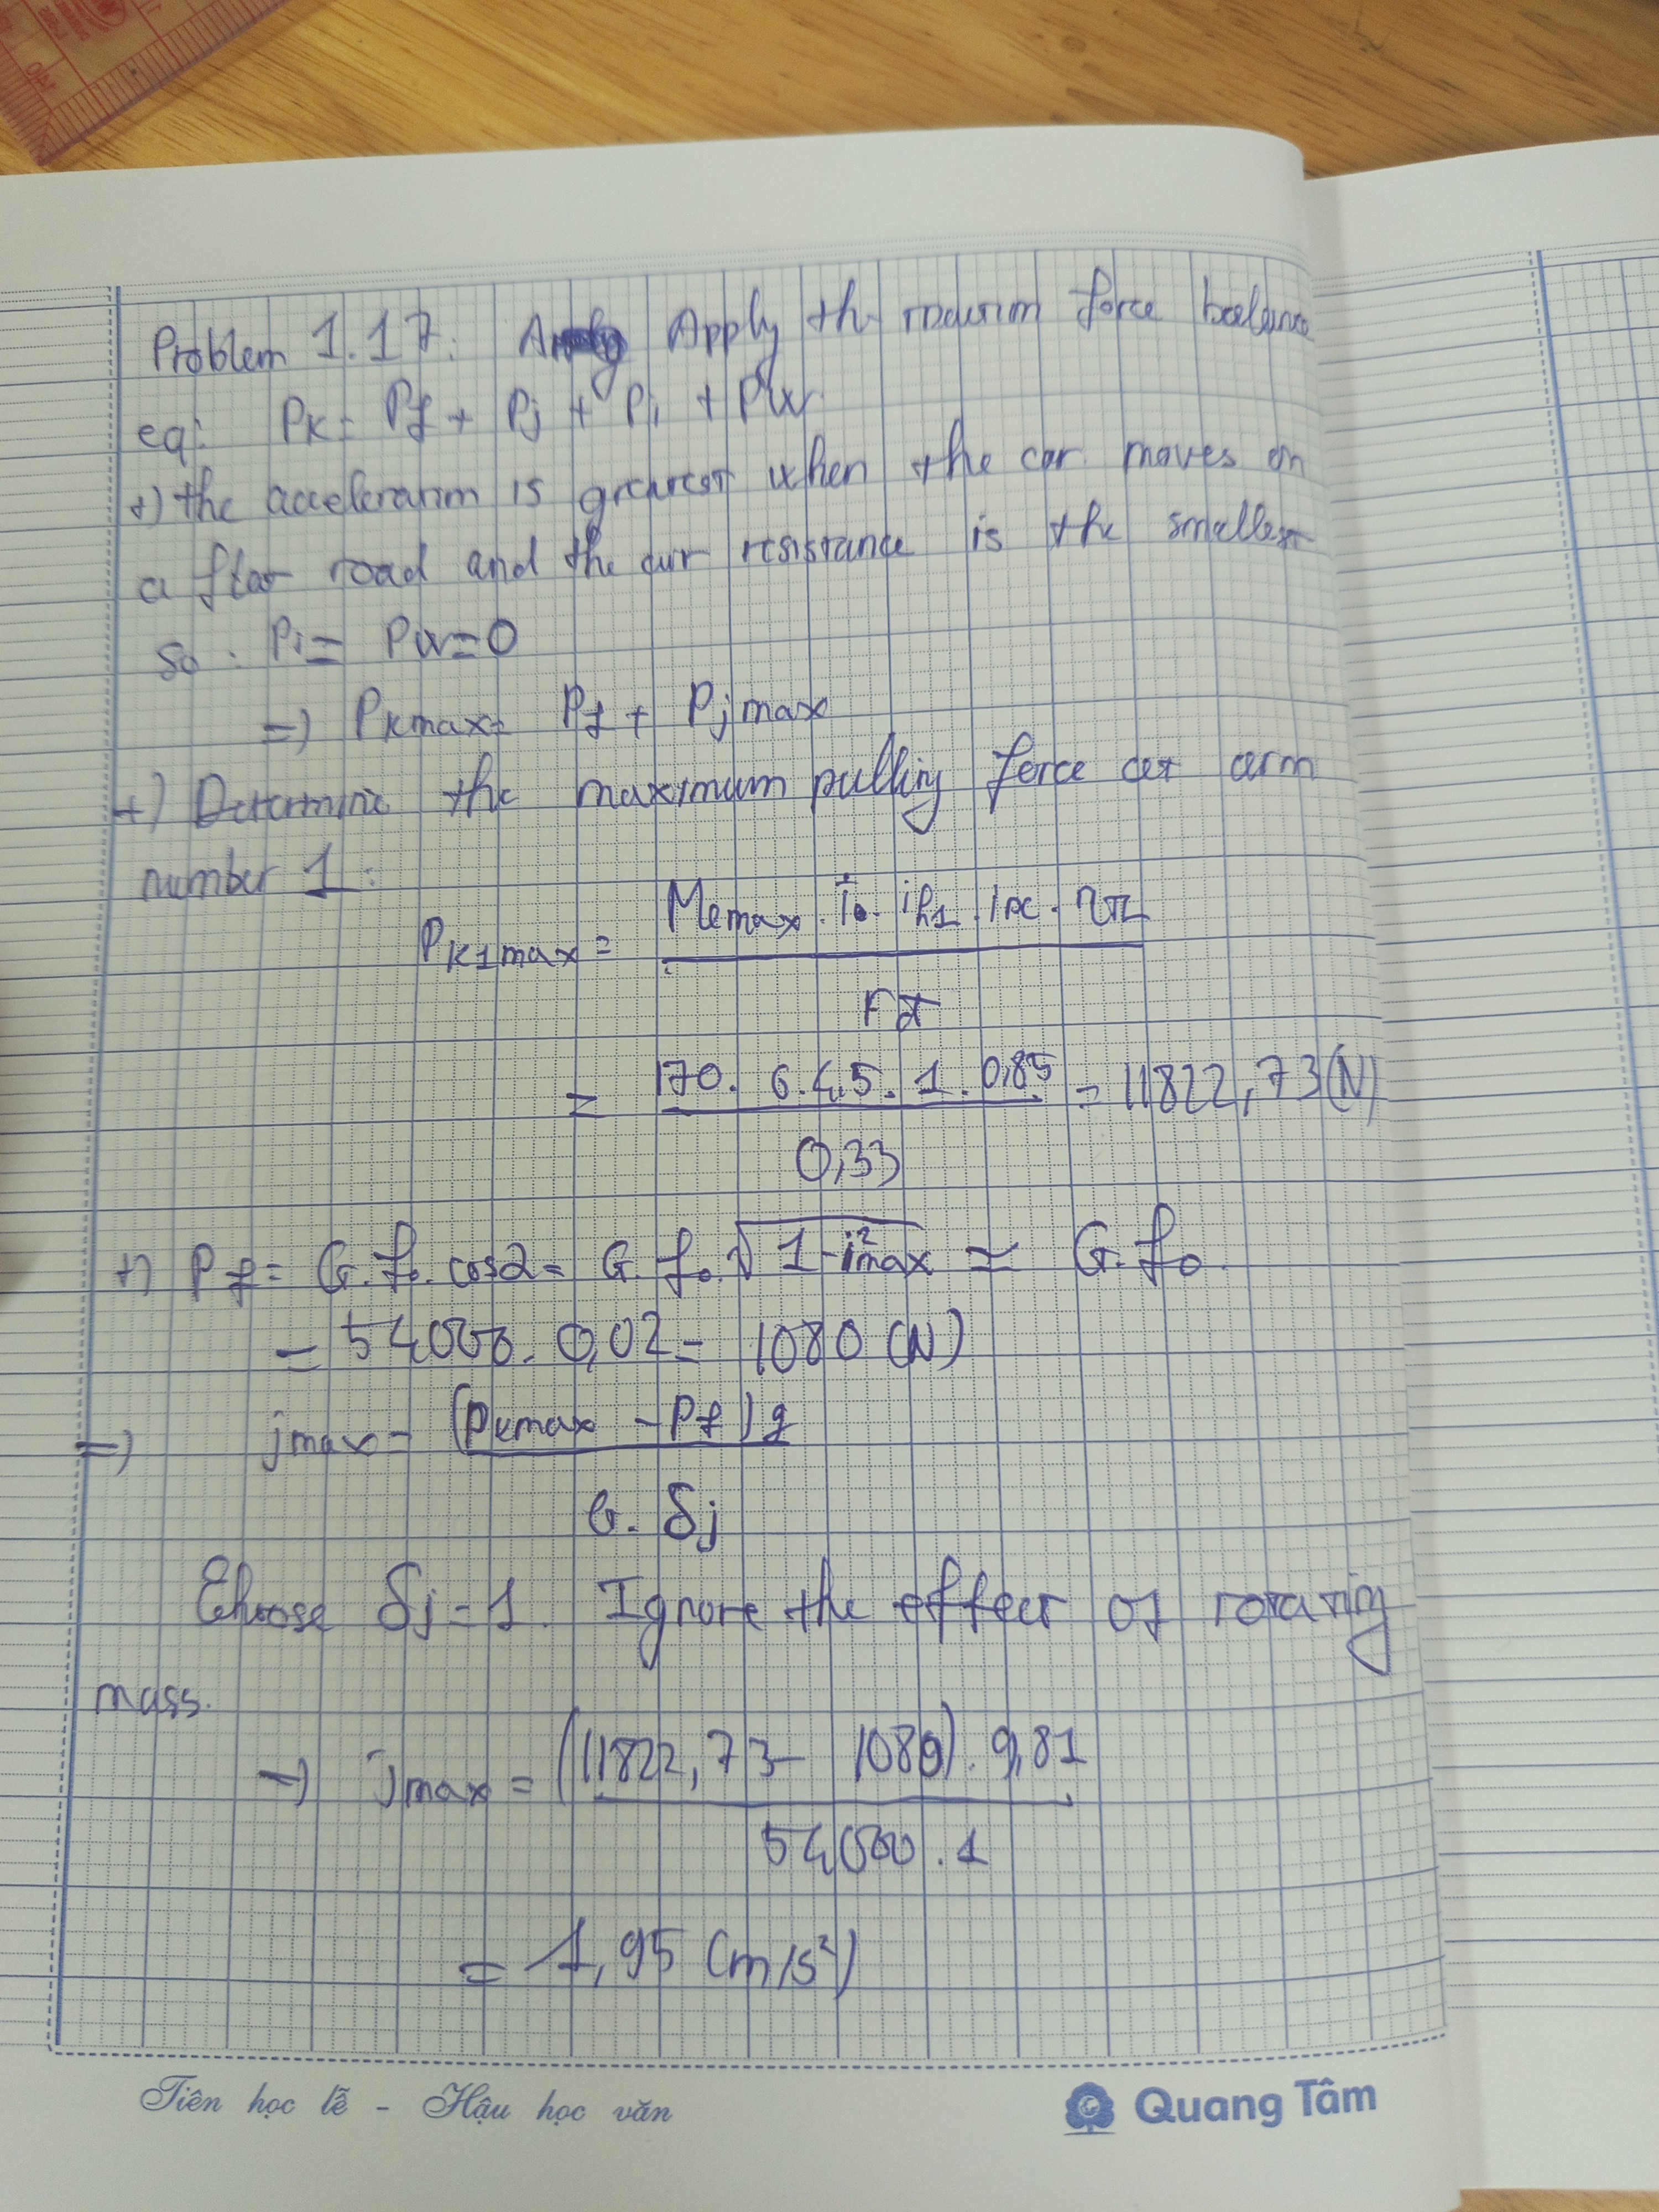 Problem 1.17: Apply the traction force balance
eq: Pk = Pf + Pj + Pi + Pw
+) the acceleration is greatest when the car moves on
a flat road and the air resistance is the smallest
so: Pi = Pw = 0
=) Pkmax = Pf + Pjmax
+) Determine the maximum pulling force at arm
number 1:
Pk1max = Memax . io . ih1 . ipc . ηtl
rđ
= 170. 6. 4,5. 1. 0,85 = 11822,73(N)
0,33
+) Pf = G.fo. cosα = G.fo. √1-i²max ≃ G.fo
= 54000. 0,02 = 1080 (N)
=) jmax = (Pkmax - Pf) g
G. δj
Choose δj = 1. Ignore the effect of rotating
mass.
=) jmax = (11822,73 - 1080). 9,81
54000 . 1
= 1,95 (m/s²)
Tiên học lễ - Hậu học văn
Quang Tâm